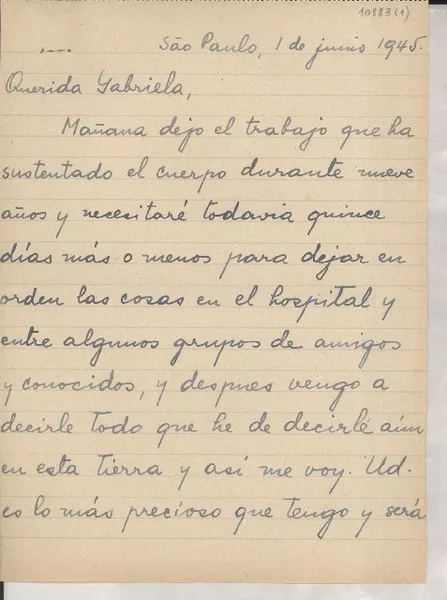 10883(1)
São Paulo, 1 de junio 1945.
Querida Gabriela,
Mañana dejo el trabajo que ha
sustentado el cuerpo durante nueve
años y necesitaré todavia quince
días más o menos para dejar en
orden las cosas en el hospital y
entre algunos grupos de amigos
y conocidos, y despues vengo a
decirle todo que he de decirlé aún
en esta tierra y así me voy. Ud.
es lo más precioso que tengo y será